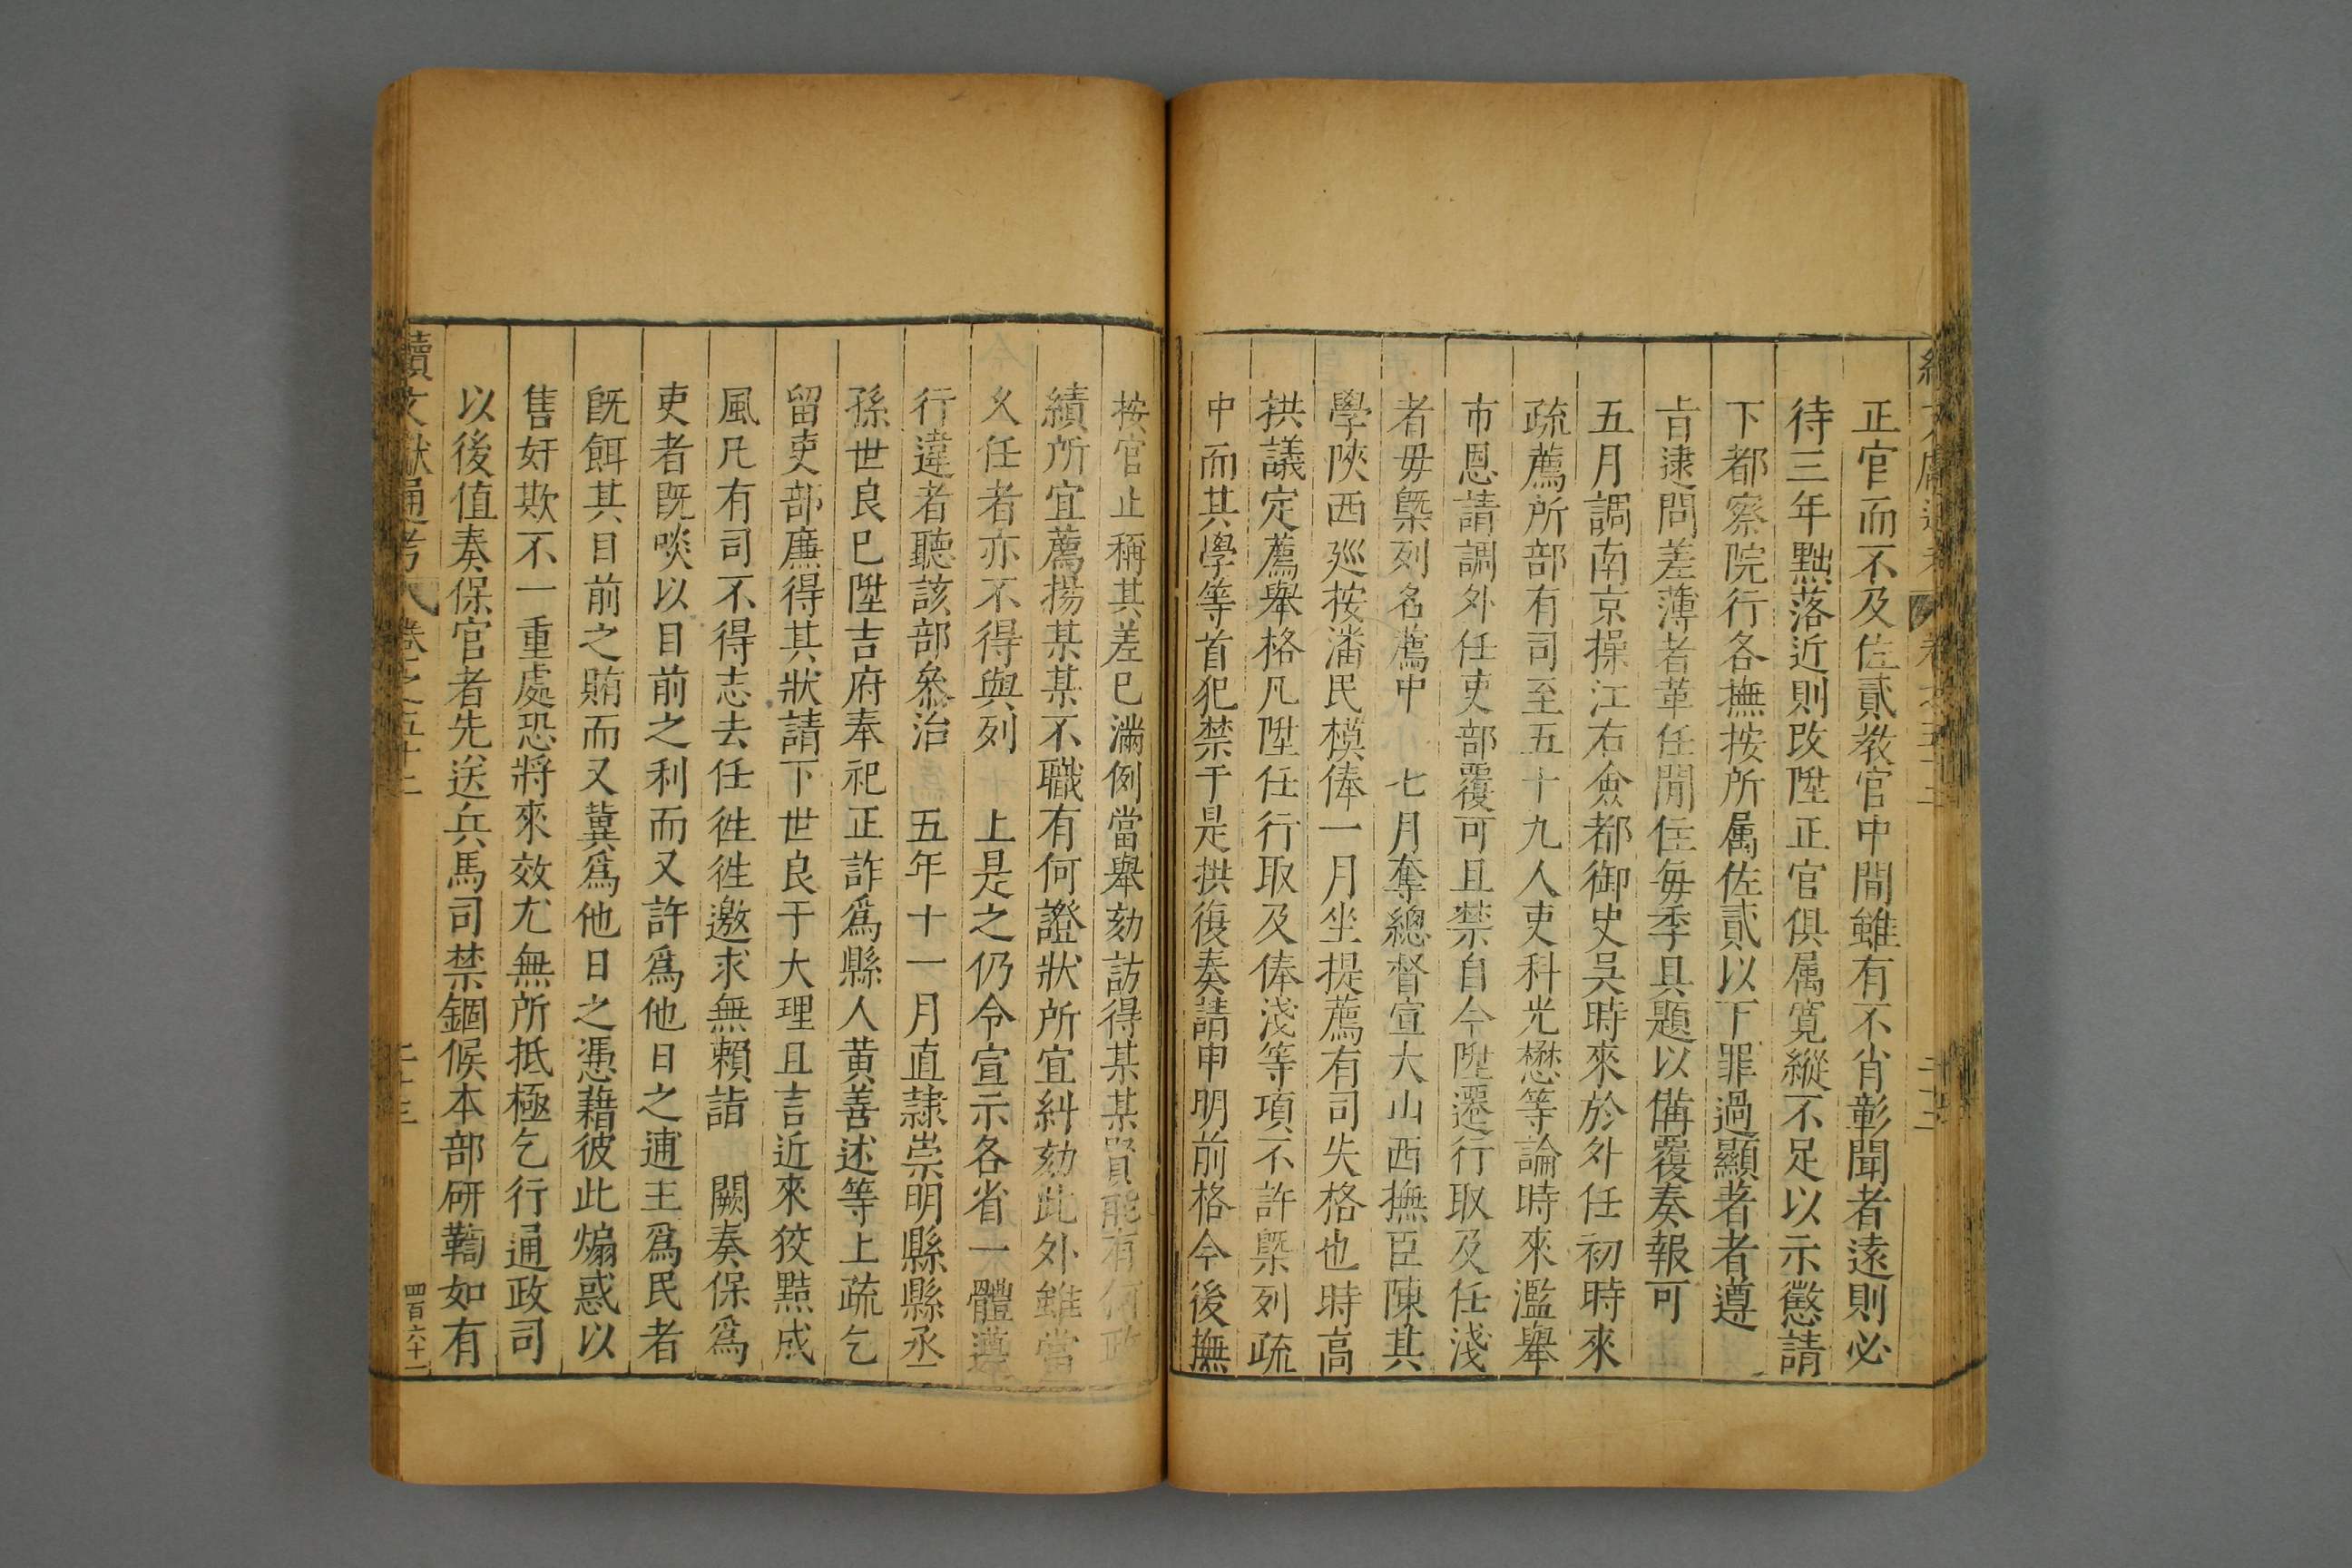 正官而不及佐貳教官中間雖有不肖彰聞者遠則必
待三年黜落近則改陞正官俱属寬縱不足以示懲請
下都察院行各撫按所属佐貳以下罪過顯著者遵
旨逮問差薄者革任閒住每季具題以備覆奏報可
五月調南京操江右僉都御史吳時來於外任初時來
疏薦所部有司至五十九人吏科光懋等論時來濫舉
市恩請調外任吏部覆可且禁自今陞遷行取及任淺
者毋槩列名薦中　七月奪總督宣大山西撫臣陳其
學陝西廵按潘民模俸一月坐提薦有司失格也時高
拱議定薦舉格凡陞任行取及俸淺等項不許槩列疏
中而其學等首犯禁于是拱復奏請申明前格今後撫
按官止稱其差已滿例當舉劾訪得某某賢能有何政
績所宜薦揚某某不職有何證狀所宜糾劾此外雖當
久任者亦不得與列　上是之仍令宣示各省一體遵
行違者聽該部叅治　五年十一月直隷崇明縣縣丞
孫世良已陞吉府奉祀正詐爲縣人黄善述等上疏乞
留吏部廉得其狀請下世良于大理且言近來狡黠成
風凡有司不得志去任徃徃邀求無賴詣　闕奏保爲
吏者既啖以目前之利而又許爲他日之逋主爲民者
既餌其目前之賄而又冀爲他日之憑藉彼此煽惑以
售奸欺不一重處恐將來效尤無所抵極乞行通政司
以後值奏保官者先送兵馬司禁錮候本部研鞫如有
續文獻通考　卷之五十二　二十三　四百六十一